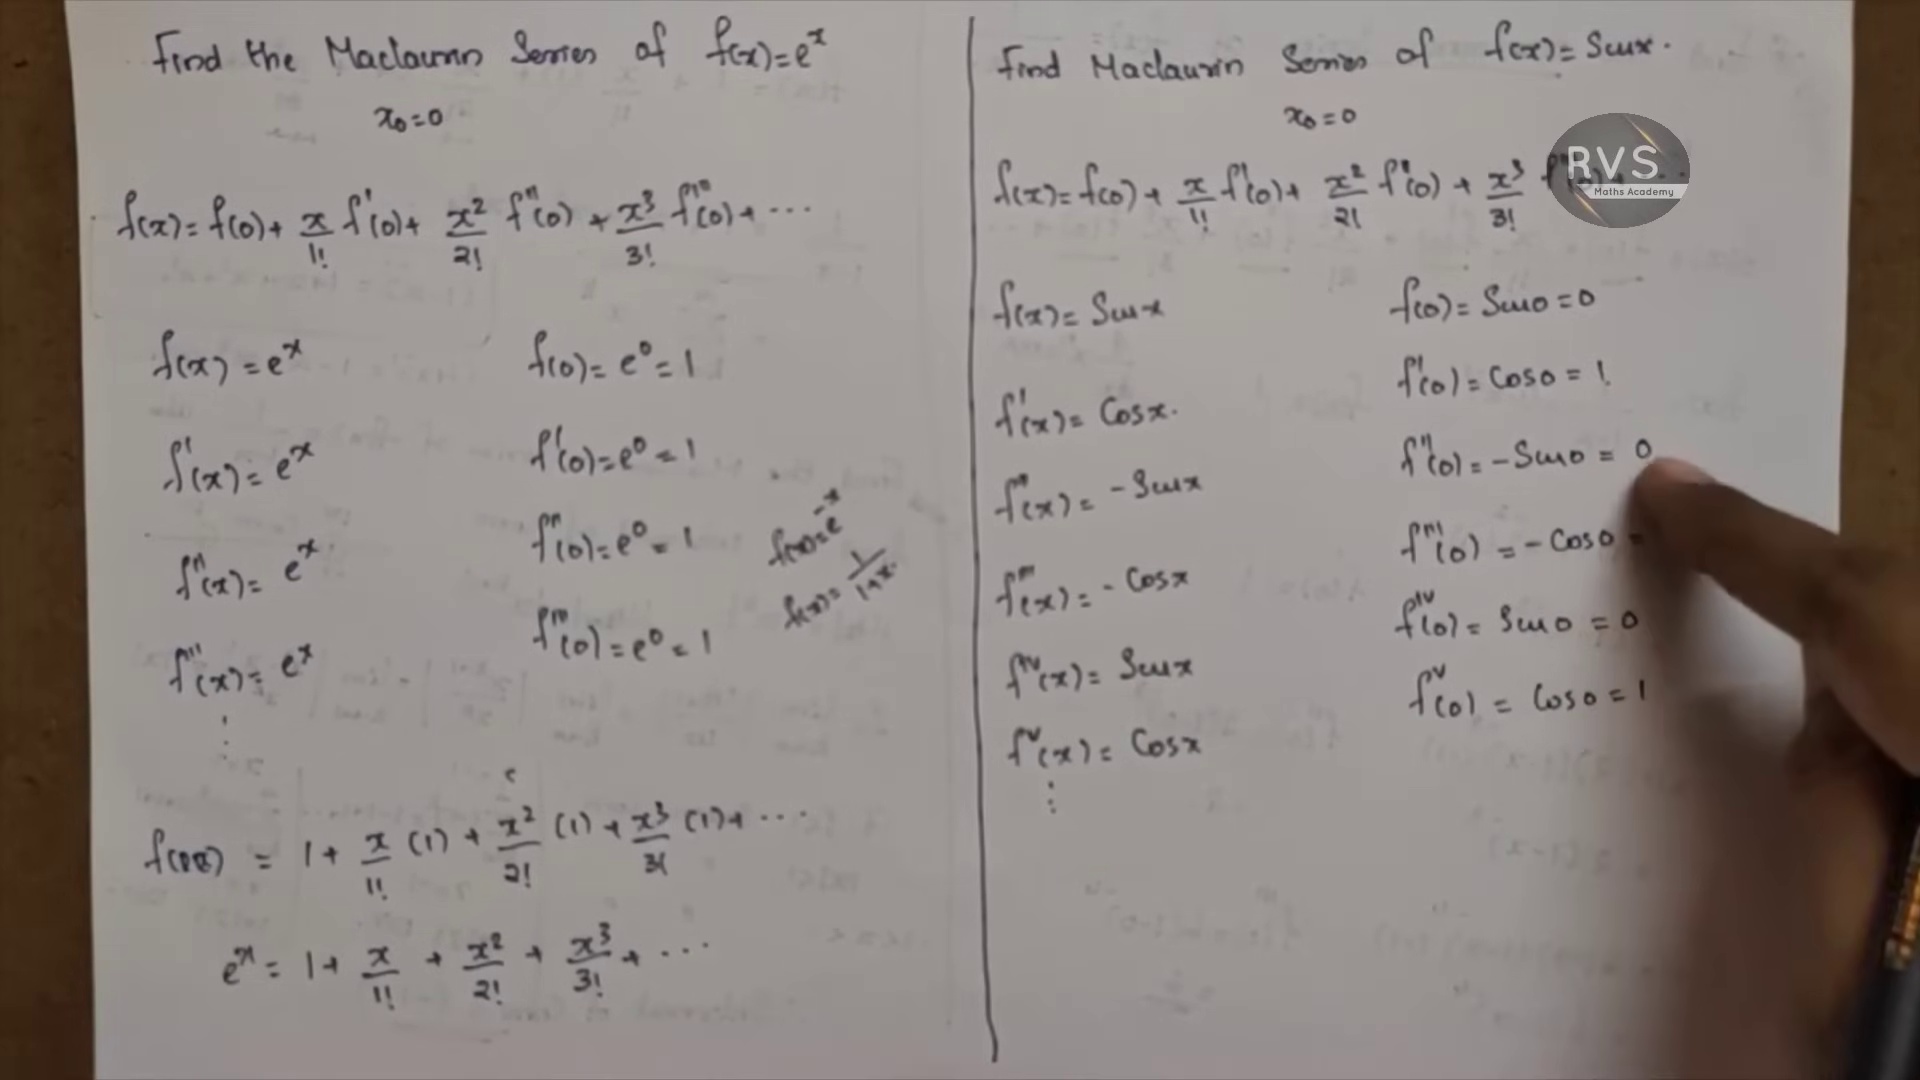 Find the Maclaurin Series of f(x)=eˣ
x₀=0
f(x)=f(0)+ x/1! f'(0)+ x²/2! f''(0) + x³/3! f'''(0)+ ...
f(x) = eˣ f(0)= e⁰ = 1
f'(x)= eˣ f'(0)=e⁰ = 1
f''(x)= eˣ f''(0)=e⁰ = 1
f'''(x)= eˣ f'''(0)=e⁰ = 1
f(x)=e⁻ˣ
f(x)= 1/1+x.
= 1+ x/1! (1) + x²/2! (1) + x³/3! (1)+ ...
eˣ = 1+ x/1! + x²/2! + x³/3! + ...
Find Maclaurin Series of f(x)= Sinx.
x₀=0
RVS
Maths Academy
f(x)= f(0)+ x/1! f'(0)+ x²/2! f''(0) + x³/3!
f(x)= Sinx f(0)= Sin0=0
f'(x)= Cosx. f'(0)= Cos0 = 1.
f''(x)= -Sinx f''(0)= -Sin0 = 0
f'''(x)= -Cosx f'''(0) = -Cos0 =
fⁱᵛ(x)= Sinx fⁱᵛ(0)= Sin0 = 0
fᵛ(x)= Cosx fᵛ(0) = Cos0 = 1